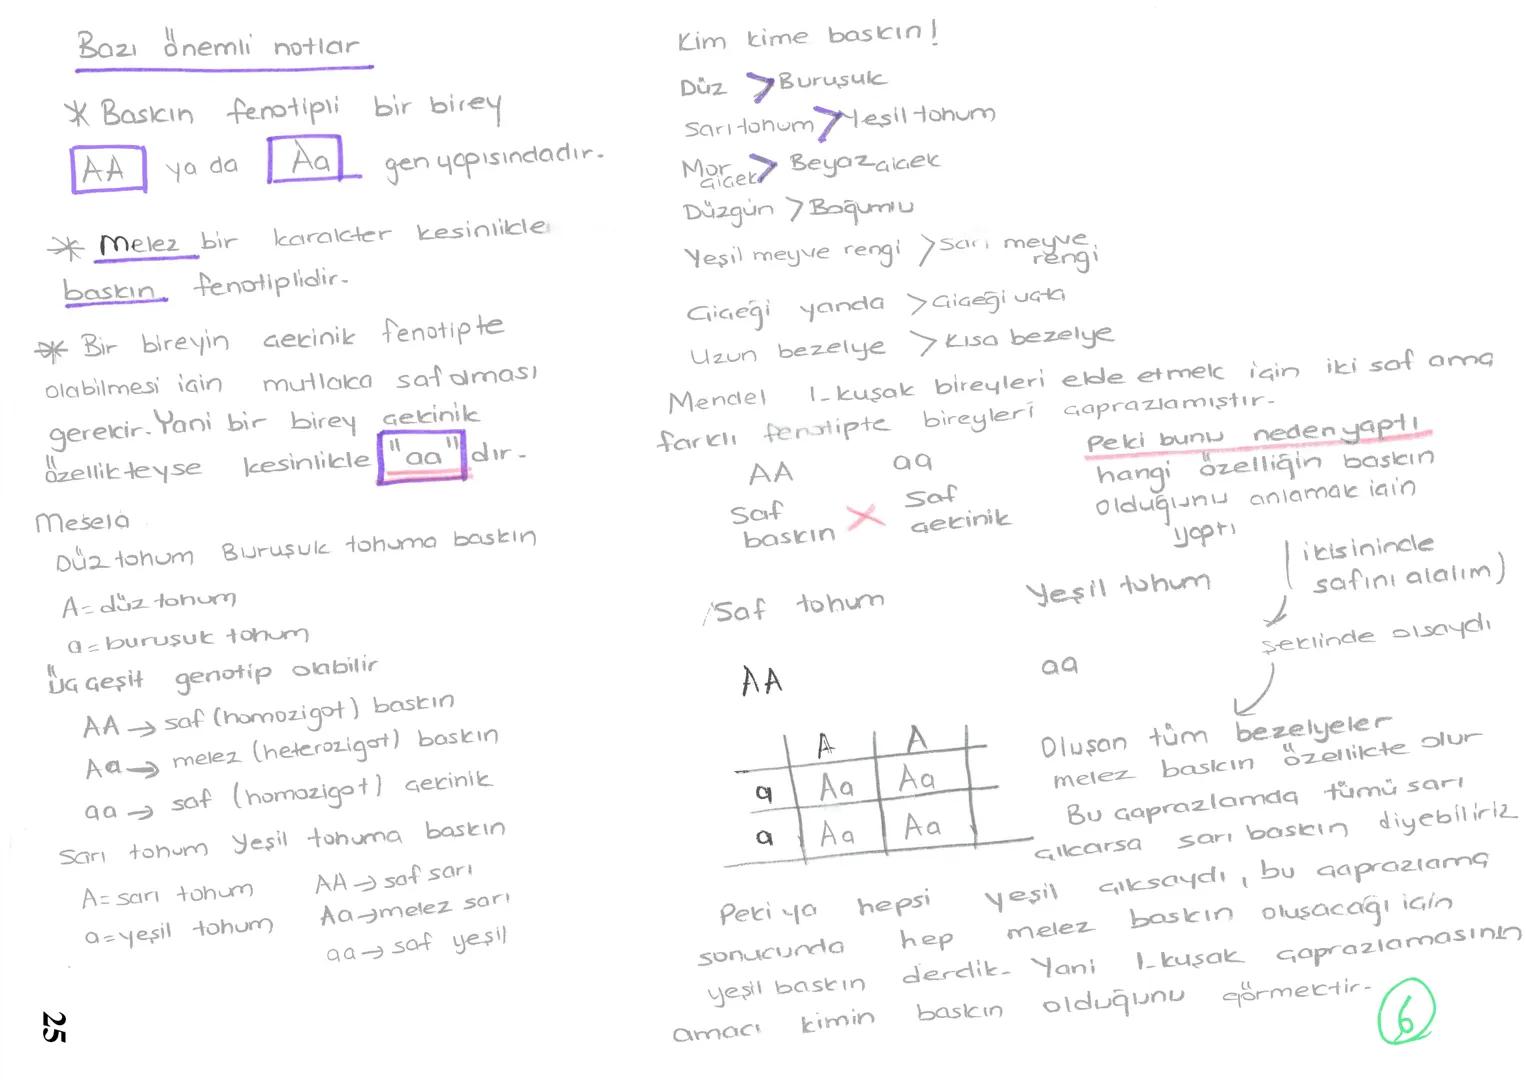 Bazı önemli notlar
* Baskın fenotipli bir birey
AA ya da Aa gen yapısındadır.
* Melez bir karakter kesinlikle
baskın fenotiplidir.
* Bir bireyin çekinik fenotipte
olabilmesi için mutlaka saf olması
gerekir. Yani bir birey çekinik
özellikteyse kesinlikle "aa" dır.
Mesela
Düz tohum Buruşuk tohuma baskın
A= düz tohum
a= buruşuk tohum
Üç çeşit genotip olabilir
AA → saf (homozigot) baskın
Aa → melez (heterozigot) baskın
aa → saf (homozigot) çekinik
Sarı tohum Yeşil tohuma baskın
A= sarı tohum AA → saf sarı
a= yeşil tohum Aa → melez sarı
aa → saf yeşil
25
Kim kime baskın!
Düz > Buruşuk
Sarı tohum > Yeşil tohum
Mor çiçek > Beyaz çiçek
Düzgün > Boğumlu
Yeşil meyve rengi > Sarı meyve rengi
Çiçeği yanda > Çiçeği uçta
Uzun bezelye > Kısa bezelye
Mendel 1-kuşak bireyleri elde etmek için iki saf ama
farklı fenotipte bireyleri çaprazlamıştır.
AA aa
Saf baskın X Saf çekinik
Peki bunu neden yaptı
hangi özelliğin baskın
olduğunu anlamak için
yaptı
Saf tohum Yeşil tohum
(ikisininde
safını alalım)
AA aa
şeklinde olsaydı
A A
a Aa Aa
a Aa Aa
Oluşan tüm bezelyeler
melez baskın özellikte olur
Bu çaprazlamda tümü sarı
çıkarsa sarı baskın diyebiliriz
Peki ya hepsi yeşil çıksaydı, bu çaprazlama
sonucunda hep melez baskın oluşacağı için
yeşil baskın derdik. Yani 1-kuşak çaprazlamasının
amacı kimin baskın olduğunu görmektir.
6